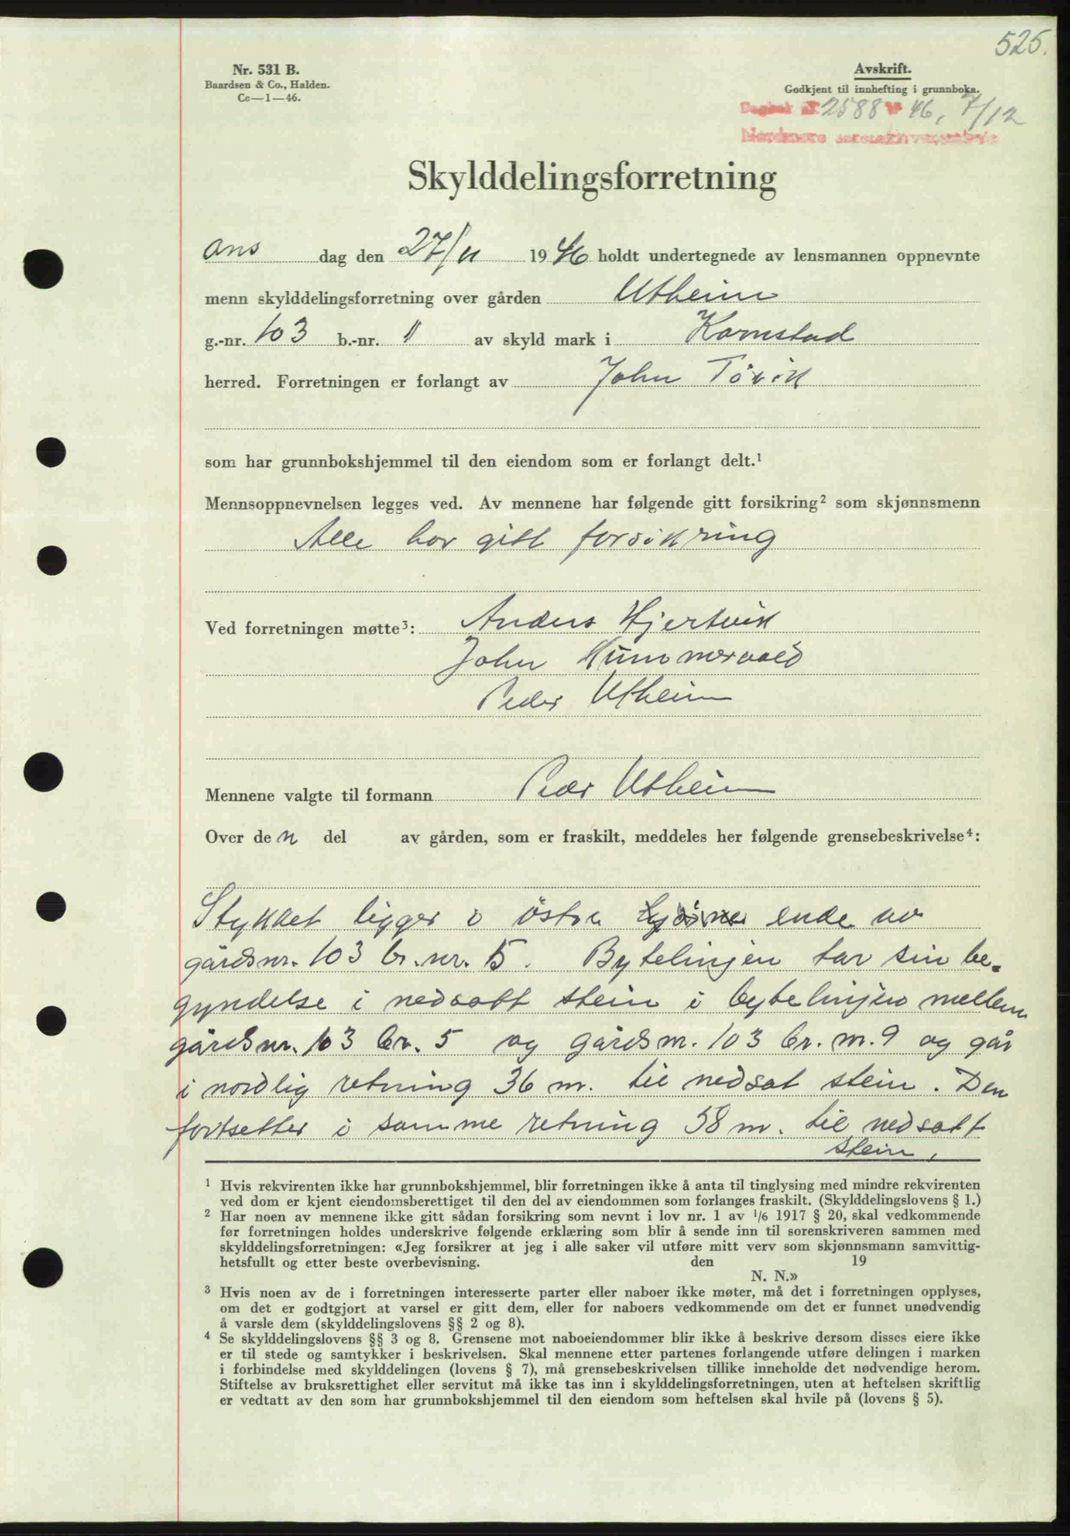 525.
Nr. 531 B.
Baardsen & Co., Halden.
Cc—1—46.
Avskrift.
Godkjent til innhefting i grunnboka.
Dagbok nr 2588 19 46, 7/12
Nordmøre sorenskriverembete
Skylddelingsforretning
ons dag den 27/11 1946 holdt undertegnede av lensmannen oppnevnte
menn skylddelingsforretning over gården Utheim
g.-nr. 103 b.-nr. 11 av skyld mark i Kornstad
herred. Forretningen er forlangt av John Tøvik
som har grunnbokshjemmel til den eiendom som er forlangt delt.¹
Mennsoppnevnelsen legges ved. Av mennene har følgende gitt forsikring² som skjønnsmenn
Alle har gitt forsikring
Ved forretningen møtte³: Anders Hjertvik
John Hummervold
Peder Utheim
Mennene valgte til formann Peder Utheim
Over den del av gården, som er fraskilt, meddeles her følgende grensebeskrivelse⁴:
Stykket ligger i östre ende av
gårdsnr. 103 br. nr. 5. Bytelinjen tar sin be-
gyndelse i nedsatt stein i bytelinjen mellem
gårdsnr. 103 br. 5 og gårdsnr. 103 br. nr. 9 og går
i nordlig retning 36 m. til nedsat stein. Den
fortsetter i samme retning 58 m. til nedsatt
stein,
¹ Hvis rekvirenten ikke har grunnbokshjemmel, blir forretningen ikke å anta til tinglysing med mindre rekvirenten
ved dom er kjent eiendomsberettiget til den del av eiendommen som forlanges fraskilt. (Skylddelingslovens § 1.)
² Har noen av mennene ikke gitt sådan forsikring som nevnt i lov nr. 1 av ¹/6 1917 § 20, skal vedkommende
før forretningen holdes underskrive følgende erklæring som blir å sende inn til sorenskriveren sammen med
skylddelingsforretningen: «Jeg forsikrer at jeg i alle saker vil utføre mitt verv som skjønnsmann samvittig-
hetsfullt og etter beste overbevisning. den 19
N. N.»
³ Hvis noen av de i forretningen interesserte parter eller naboer ikke møter, må det i forretningen opplyses,
om det er godtgjort at varsel er gitt dem, eller for naboers vedkommende om det er funnet unødvendig
å varsle dem (skylddelingslovens §§ 2 og 8).
⁴ Se skylddelingslovens §§ 3 og 8. Grensene mot naboeiendommer blir ikke å beskrive dersom disses eiere ikke
er til stede og samtykker i beskrivelsen. Skal mennene etter partenes forlangende utføre delingen i marken
i forbindelse med skylddelingen (lovens § 7), må grensebeskrivelsen tillike inneholde det nødvendige herom.
Stiftelse av bruksrettighet eller servitut må ikke tas inn i skylddelingsforretningen, uten at heftelsen skriftlig
er vedtatt av den som har grunnbokshjemmel til den eiendom som heftelsen skal hvile på (lovens § 5).